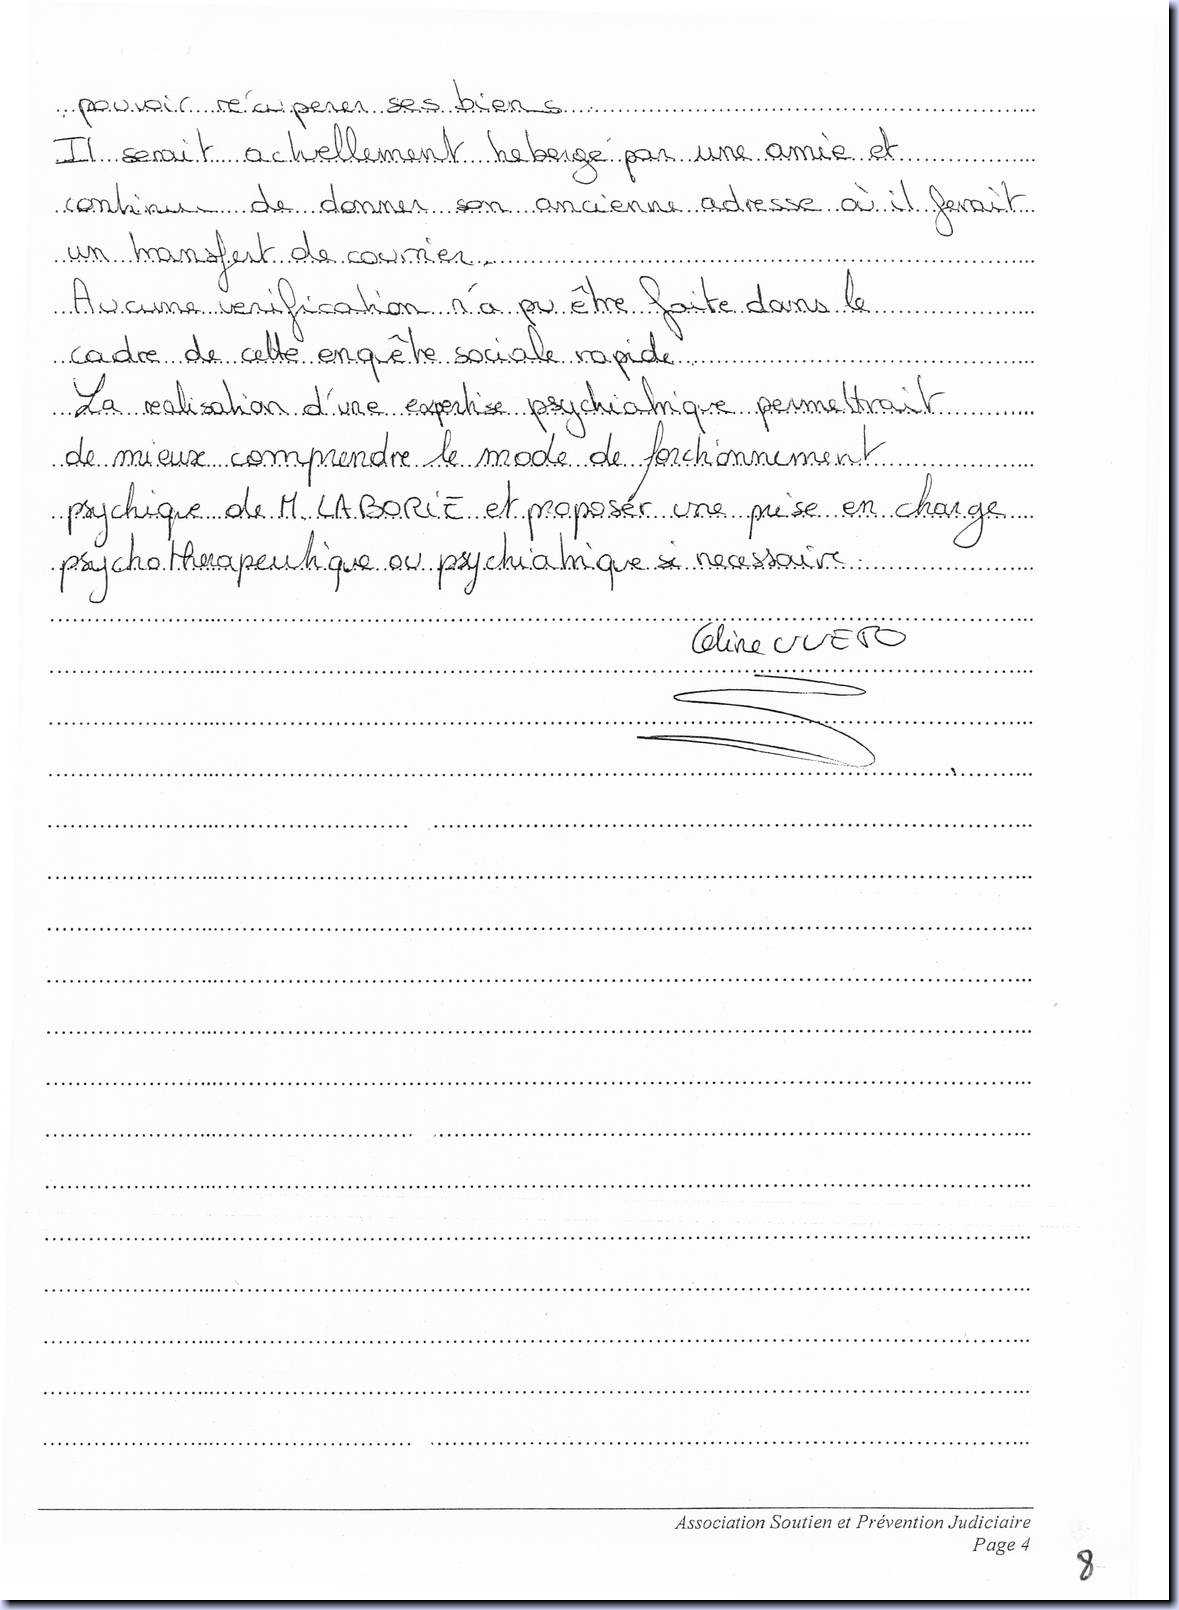 pouvoir récuperer ses biens
Il serait actuellement hebergé par une amie et
continue de donner son ancienne adresse où il ferait
un transfert de courrier.
Aucune verification n'a pu être faite dans le
cadre de cette enquête sociale rapide.
La realisation d'une expertise psychiatrique permettrait
de mieux comprendre le mode de fonctionnement
psychique de M. LABORIE et proposer une prise en charge
psychotherapeutique ou psychiatrique si necessaire.
Céline
Association Soutien et Prévention Judiciaire
Page 4
8